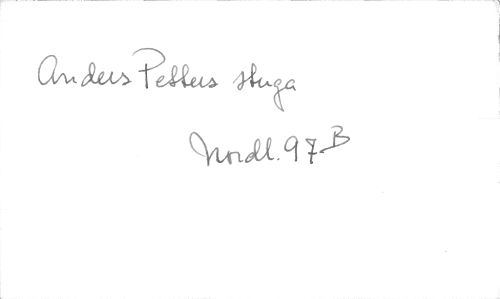 Anders Petters stuga
Nordl. 97B